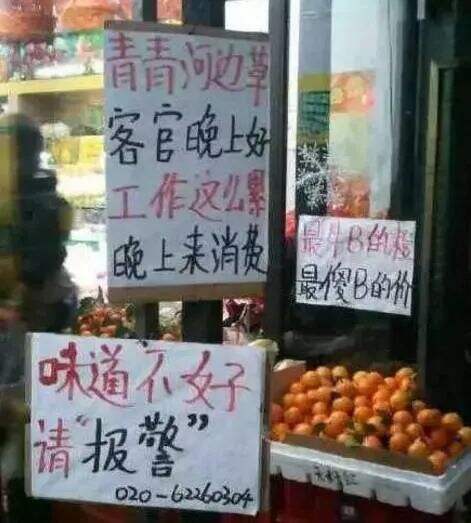 青青河边草
客官晚上好
工作这么累
晚上来消费
最牛B的橙
最傻B的价
味道不好
请“报警”
020-62260304